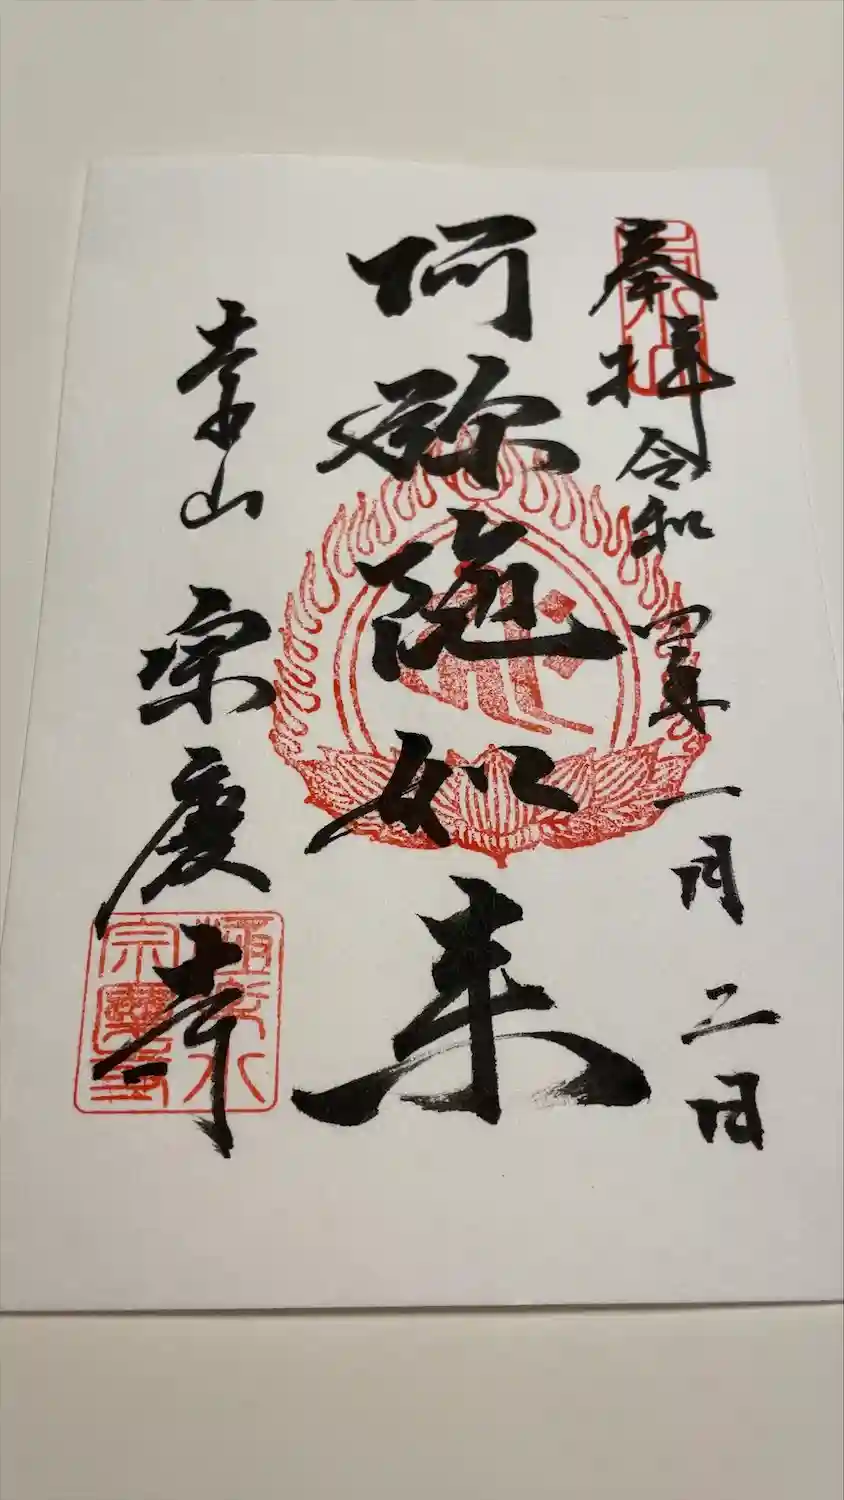 奉拝 令和四年 一月二日
阿弥陀如来
宗慶寺
極楽水
宗慶寺